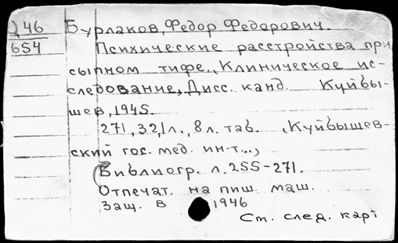 246
654
Бурлаков, Федор Федорович.
Психические расстройства при
сыпном тифе., Клиническое ис-
следование, Дисс. канд. Куйбы-
шев, 1945.
271, 32,1 л., 8 л. таб. (Куйбышев-
ский гос. мед. ин-т...,
(Библиогр. л. 255-271.
Отпечат. на пиш. маш.
Защ. в 1946
См. след. карт